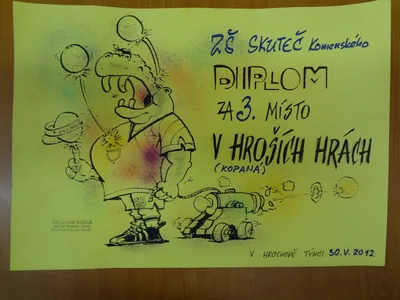 ZŠ SKUTEČ Komenského
DIPLOM
ZA 3. MÍSTO
V HROŠÍCH HRÁCH
(KOPANÁ)
V HROCHOVĚ TÝNCI 30.V.2012